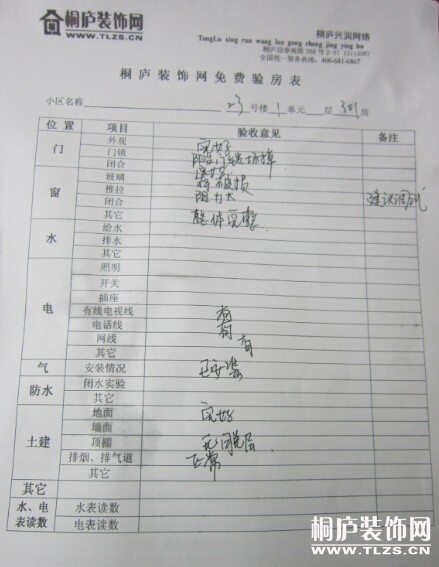 桐庐装饰网
WWW.TLZS.CN
桐庐兴润网络
TongLu xing run wang luo gong cheng jing ying bu
全国统一服务热线: 400-681-6867
桐庐装饰网免费验房表
小区名称 23 号楼 1 单元 层 301 房
位置 项目 验收意见 备注
门 外观 完好
门锁
闭合 完好
窗 玻璃 有破损
推拉 阻力大 建议调试
闭合
其它 整体完整
水 给水
排水
其它
电 照明
开关
插座
有线电视线 有
电话线 有
网线 有
其它
气 安装情况 已安装
防水 闭水实验
其它
土建 地面 完好
墙面
顶棚
排烟、排气道 正常
其它
其它
水、电表读数 水表读数
电表读数
桐庐装饰网
WWW.TLZS.CN